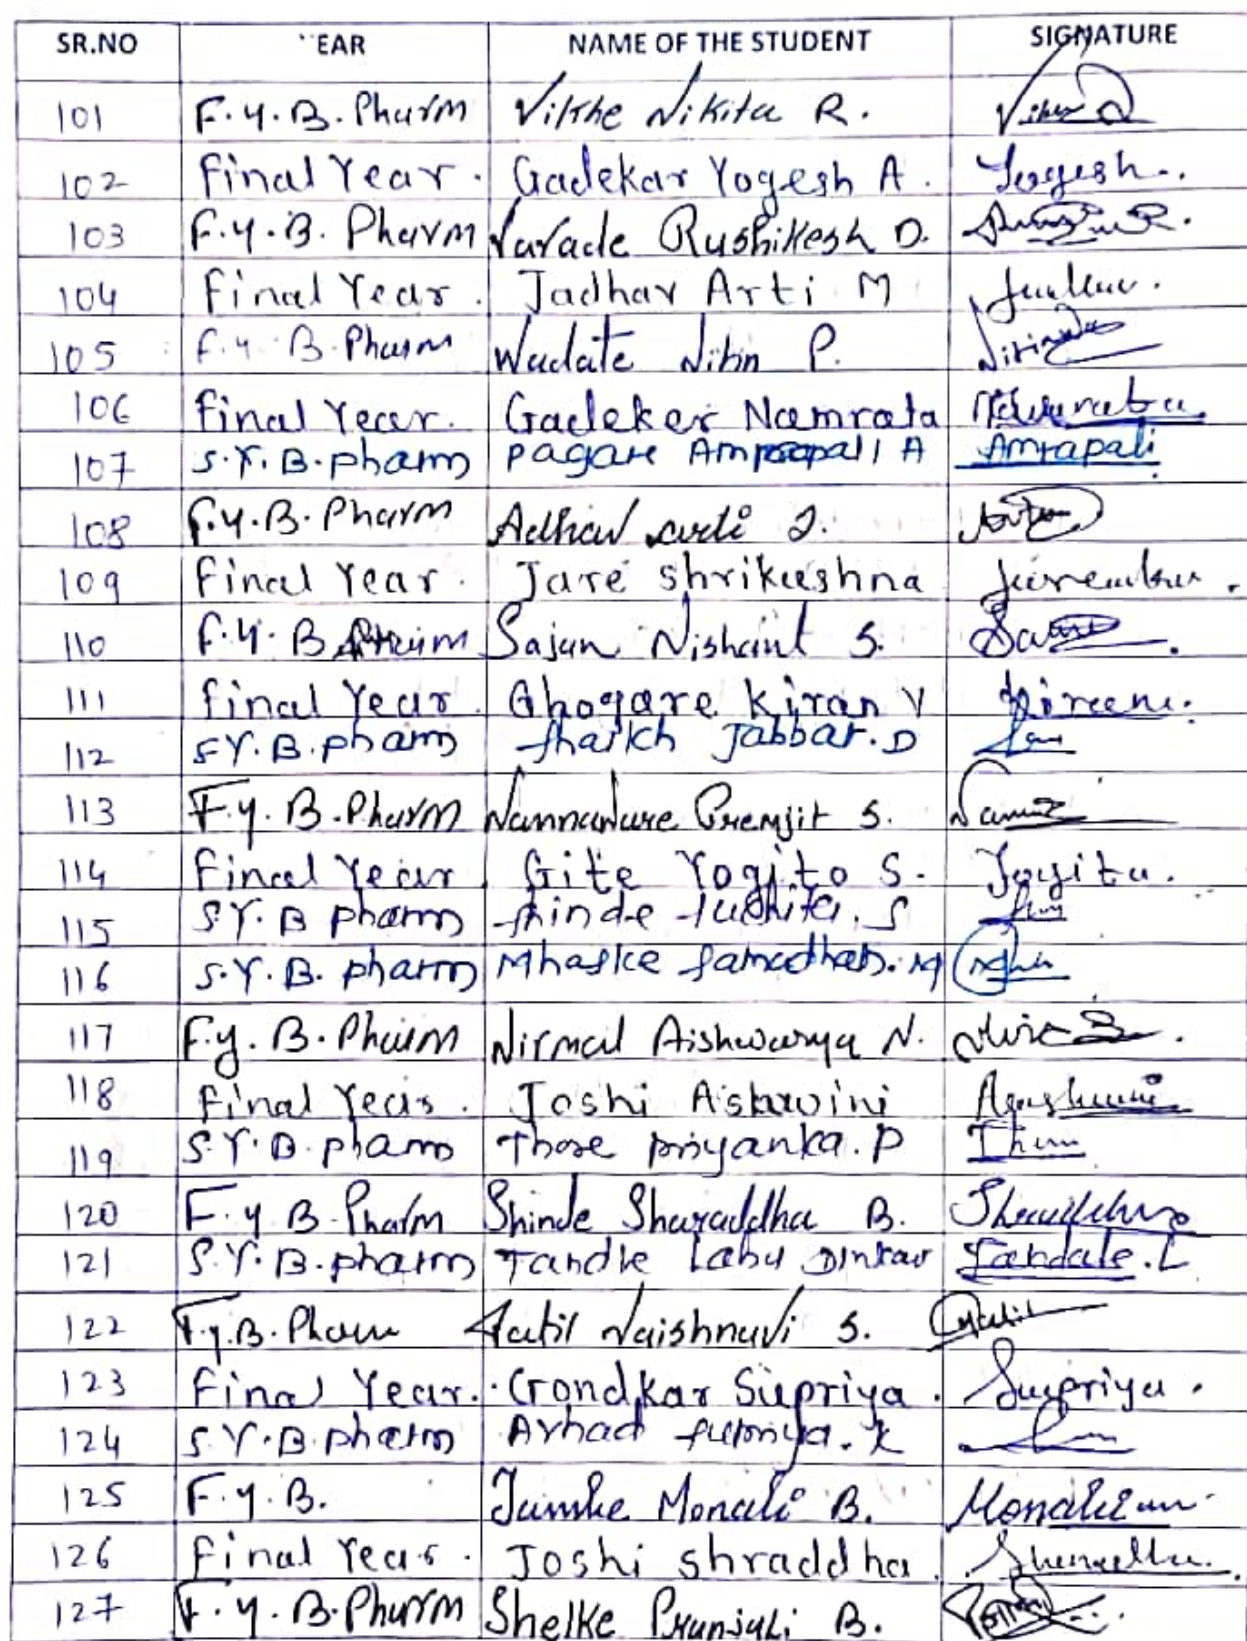 SR.NO EAR NAME OF THE STUDENT SIGNATURE
101 F.Y.B.Pharm Vikhe Nikita R.
102 Final Year. Gadekar Yogesh A. Yogesh..
103 F.Y.B. Pharm Varade Rushikesh D.
104 Final Year. Jadhav Arti M
105 F.Y B.Pharm Wadate Nitin P. Nitin
106 Final Year. Gadeker Namrata Namrata.
107 S.Y.B.pharm Pagare Amrapali A Amrapali
108 F.Y.B.Pharm Adhav Arti J.
109 Final Year. Jare Shrikushna
110 F.Y.B Pharm Sajan Nishant S.
111 Final Year. Ghogare Kiran V
112 S.Y.B.pharm Shaikh Jabbar.D
113 F.Y.B.Pharm Nannaware Premjit S.
114 Final Year Gite Yogita S. Yogita.
115 S.Y.B pharm Shinde S
116 S.Y.B. pharm Mhaske Samadhan.M
117 F.Y.B.Pharm Nirmal Aishwarya N.
118 Final Year. Joshi Ashwini
119 S.Y.B.pharm Thore Priyanka.P
120 F.Y B.Pharm Shinde Sharaddha B.
121 S.Y.B.pharm Tandle Labu Dinkar Tandale.L
122 F.Y.B.Pharm Patil Vaishnavi S.
123 Final Year. Gondkar Supriya. Supriya.
124 S.Y.B.pharm Avhad Supriya.K
125 F.Y.B. Jumke Monali B.
126 Final Year. Joshi shraddha
127 F.Y.B.Pharm Shelke Pranjali B.